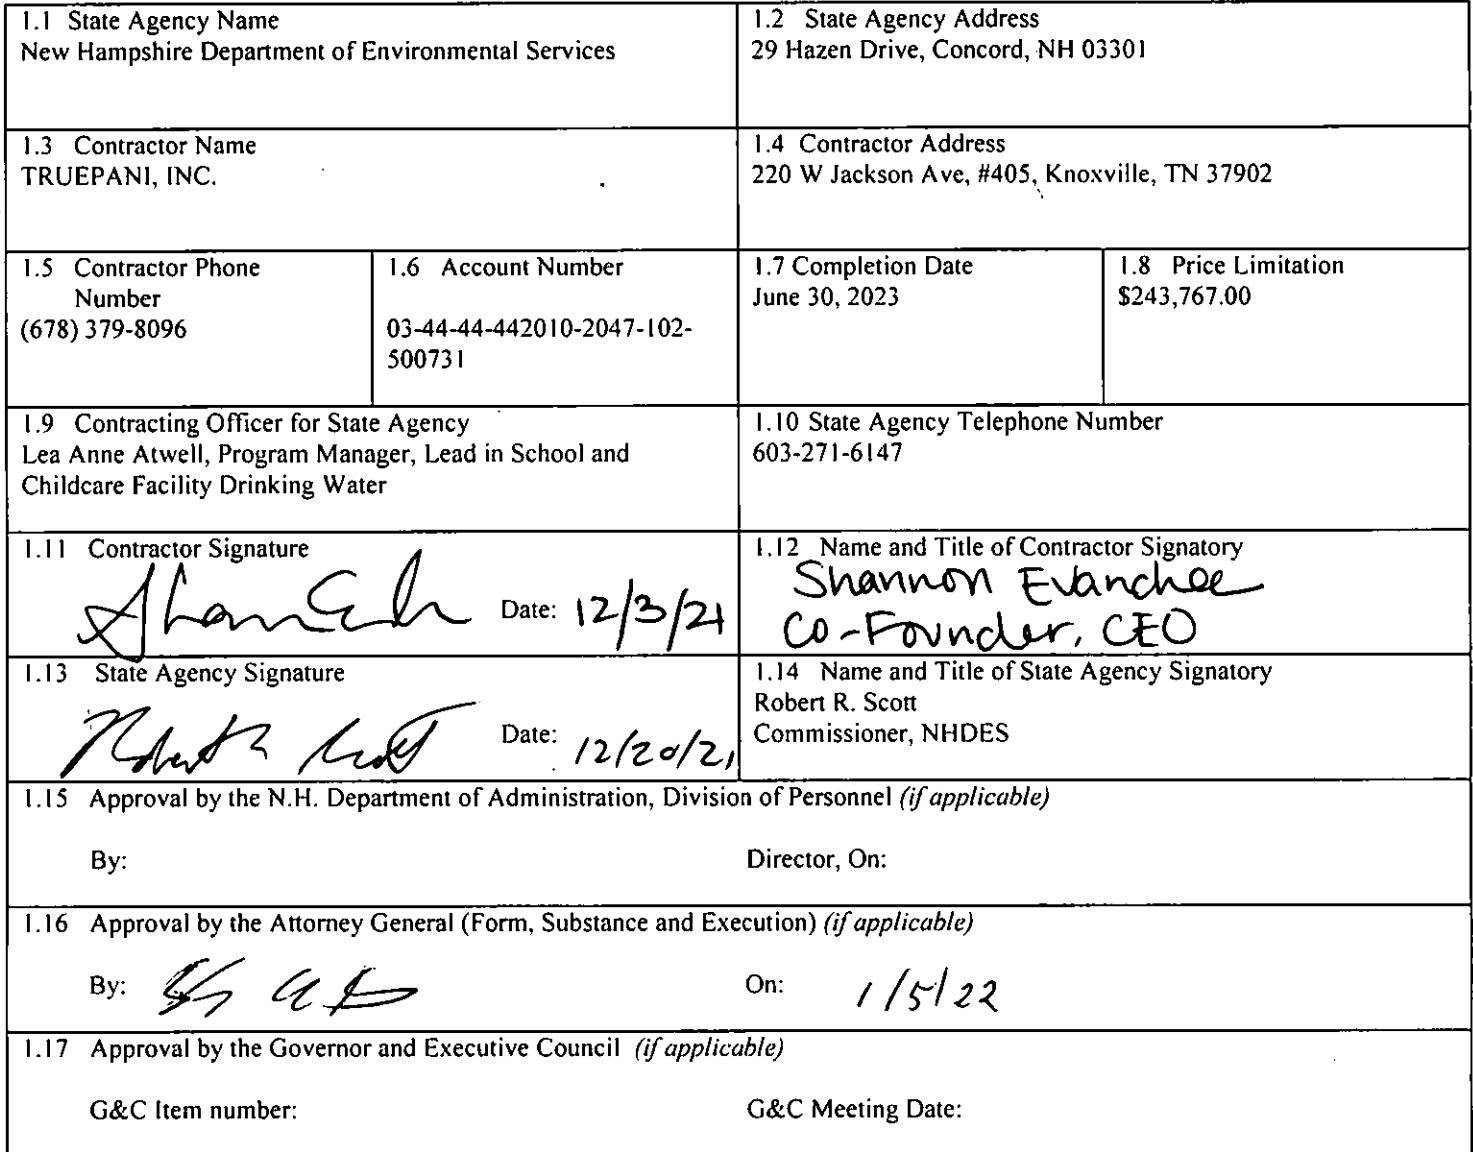 1.1 State Agency Name
New Hampshire Department of Environmental Services
1.2 State Agency Address
29 Hazen Drive, Concord, NH 03301
1.3 Contractor Name
TRUEPANI, INC.
1.4 Contractor Address
220 W Jackson Ave, #405, Knoxville, TN 37902
1.5 Contractor Phone
Number
(678) 379-8096
1.6 Account Number
03-44-44-442010-2047-102-
500731
1.7 Completion Date
June 30, 2023
1.8 Price Limitation
$243,767.00
1.9 Contracting Officer for State Agency
Lea Anne Atwell, Program Manager, Lead in School and
Childcare Facility Drinking Water
1.10 State Agency Telephone Number
603-271-6147
1.11 Contractor Signature
Date: 12/3/21
1.12 Name and Title of Contractor Signatory
Shannon Evanchec
Co-Founder, CEO
1.13 State Agency Signature
Date: 12/20/21
1.14 Name and Title of State Agency Signatory
Robert R. Scott
Commissioner, NHDES
1.15 Approval by the N.H. Department of Administration, Division of Personnel (if applicable)
By:
Director, On:
1.16 Approval by the Attorney General (Form, Substance and Execution) (if applicable)
By:
On: 1/5/22
1.17 Approval by the Governor and Executive Council (if applicable)
G&C Item number:
G&C Meeting Date: